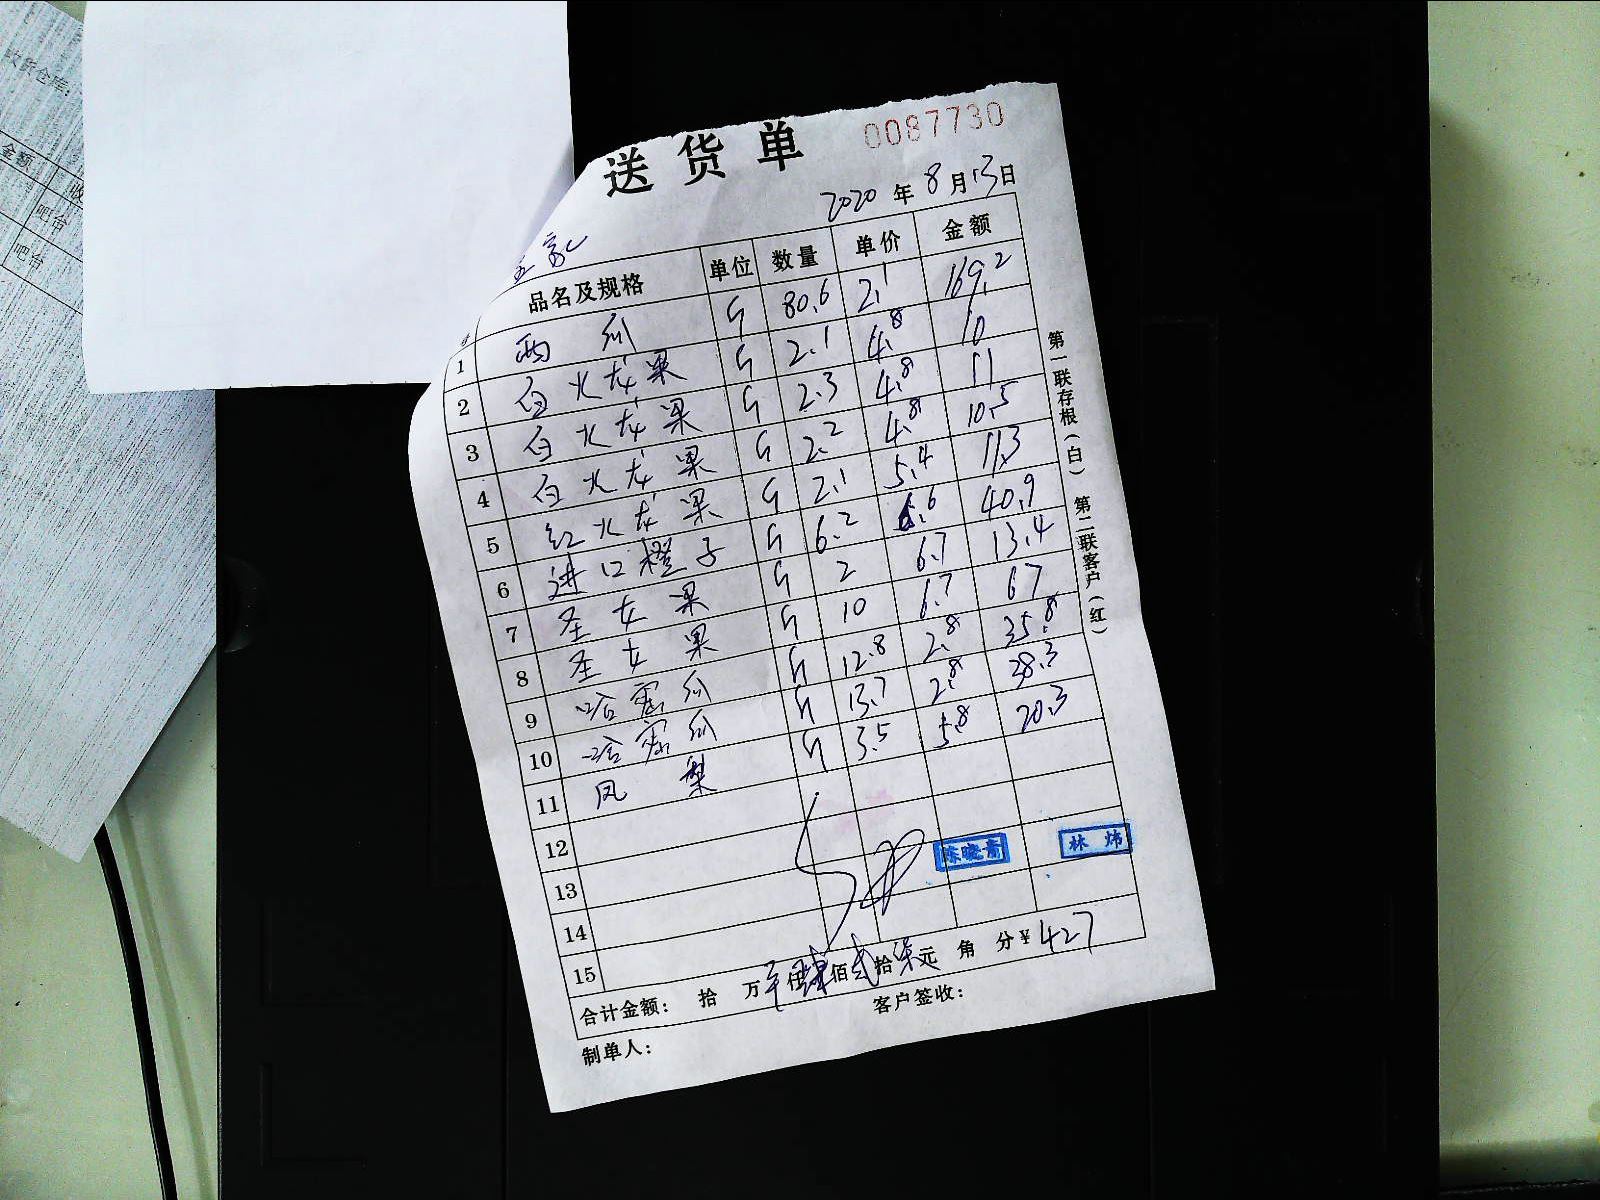 收货仓库:
金额
收
吧台
吧台
送货单 0087730
2020年8月13日
品名及规格 单位 数量 单价 金额
1 西瓜 斤 80.6 2.1 169.2
2 白火龙果 斤 2.1 4.8 10
3 白火龙果 斤 2.3 4.8 11
4 白火龙果 斤 2.2 4.8 10.5
5 红火龙果 斤 2.1 5.4 11.3
6 进口橙子 斤 6.2 6.6 40.9
7 圣女果 斤 2 6.7 13.4
8 圣女果 斤 10 6.7 67
9 哈密瓜 斤 12.8 2.8 35.8
10 哈密瓜 斤 13.7 2.8 38.3
11 凤梨 斤 3.5 5.8 20.3
12
13
14
15
陈晓青 林炜
合计金额: 拾 万 仟肆佰贰拾柒元 角 分¥427
制单人: 客户签收:
第一联存根(白) 第二联客户(红)